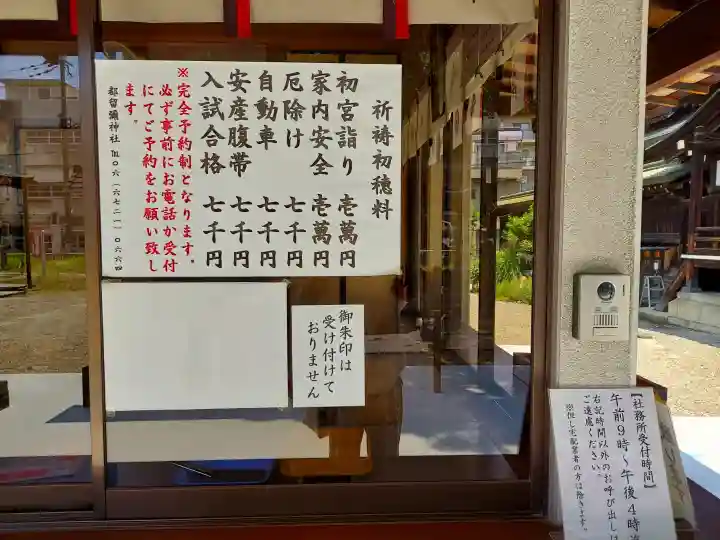 祈祷初穂料
初宮詣り 壱萬円
家内安全 壱萬円
厄除け 七千円
自動車 七千円
安産腹帯 七千円
入試合格 七千円
※完全予約制となります。
必ず事前にお電話か受付
にてご予約をお願い致し
ます。
都留彌神社 ℡06(6721)0664
御朱印は
受け付けて
おりません
【社務所受付時間】
午前9時~午後4時
右記時間以外のお呼び出しは
ご遠慮ください。